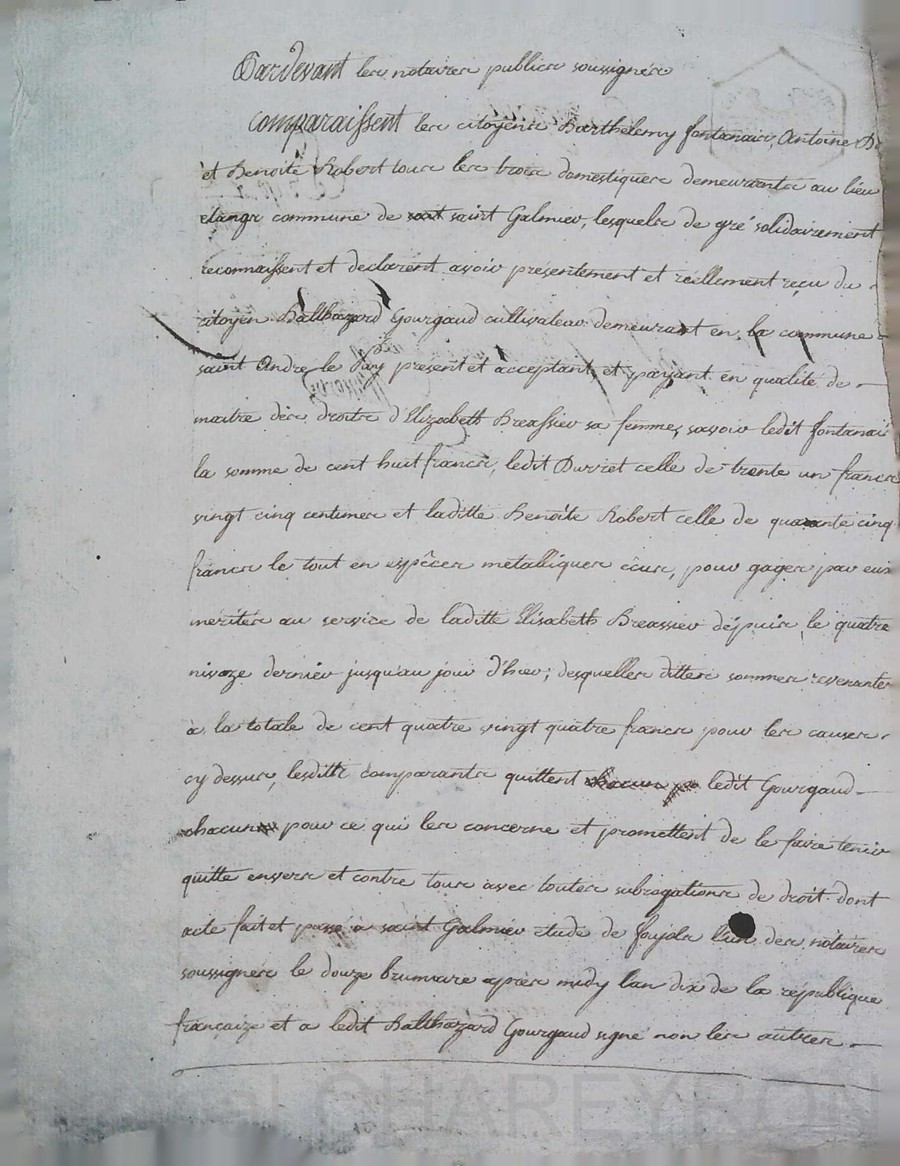 Pardevant les notaires publics soussignés
comparaissent les citoyens Barthelemy fontanais, Antoine D
et Benoite Robert tous les trois domestiques demeurants au lieu
etangs commune de saint Galmier, lesquels de gré solidairement
reconnaissent et declarent avoir présentement et réellement reçu du
citoyen Balthazard Gourgaud cultivateur demeurant en la commune
saint André le Puy présent et acceptant et payant en qualité de
maitre des droits d'Elizabeth Breassier sa femme, savoir ledit fontanai
la somme de cent huit francs, ledit Durret celle de trente un francs
vingt cinq centimes et laditte Benoite Robert celle de quarante cinq
francs le tout en espêces metalliques cours, pour gages par eux
mérités au service de laditte Elisabeth Breassier dépuis le quatre
nivoze dernier jusqu'au jour d'hier; desquelles dittes sommes revenantes
à la totale de cent quatre vingt quatre francs pour les causes
cy dessus, lesdits comparants quittent ledit Gourgaud
chacun pour ce qui les concerne et promettent de le faire tenir
quitte envers et contre tous avec toutes subrogations de droit dont
acte fait et passé à saint Galmier etude de foujols l'un des notaires
soussignés le douze brumaire après midy l'an dix de la république
françaize et a ledit Balthazard Gourgaud signé non les autres
CHAREYRON